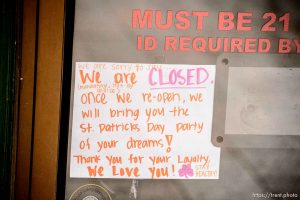 MUST BE 21
ID REQUIRED BY
We are sorry to say
We are CLOSED.
once we re-open, we
will bring you the
St. Patricks Day party
of your dreams!
Thank you for your Loyalty,
We Love you! STAY
HEALTHY!
https://trent.photo